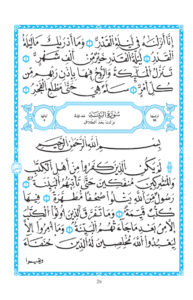 إِنَّا أَنزَلْنَاهُ فِي لَيْلَةِ الْقَدْرِ ۝ وَمَا أَدْرَاكَ مَا لَيْلَةُ
الْقَدْرِ ۝ لَيْلَةُ الْقَدْرِ خَيْرٌ مِّنْ أَلْفِ شَهْرٍ ۝
تَنَزَّلُ الْمَلَائِكَةُ وَالرُّوحُ فِيهَا بِإِذْنِ رَبِّهِم مِّن
كُلِّ أَمْرٍ ۝ سَلَامٌ هِيَ حَتَّىٰ مَطْلَعِ الْفَجْرِ ۝
بِسْمِ اللَّهِ الرَّحْمَٰنِ الرَّحِيمِ
لَمْ يَكُنِ الَّذِينَ كَفَرُوا مِنْ أَهْلِ الْكِتَابِ
وَالْمُشْرِكِينَ مُنفَكِّينَ حَتَّىٰ تَأْتِيَهُمُ الْبَيِّنَةُ ۝
رَسُولٌ مِّنَ اللَّهِ يَتْلُو صُحُفًا مُّطَهَّرَةً ۝ فِيهَا
كُتُبٌ قَيِّمَةٌ ۝ وَمَا تَفَرَّقَ الَّذِينَ أُوتُوا الْكِتَابَ
إِلَّا مِن بَعْدِ مَا جَاءَتْهُمُ الْبَيِّنَةُ ۝ وَمَا أُمِرُوا إِلَّا
لِيَعْبُدُوا اللَّهَ مُخْلِصِينَ لَهُ الدِّينَ حُنَفَاءَ
وَيُقِيمُوا